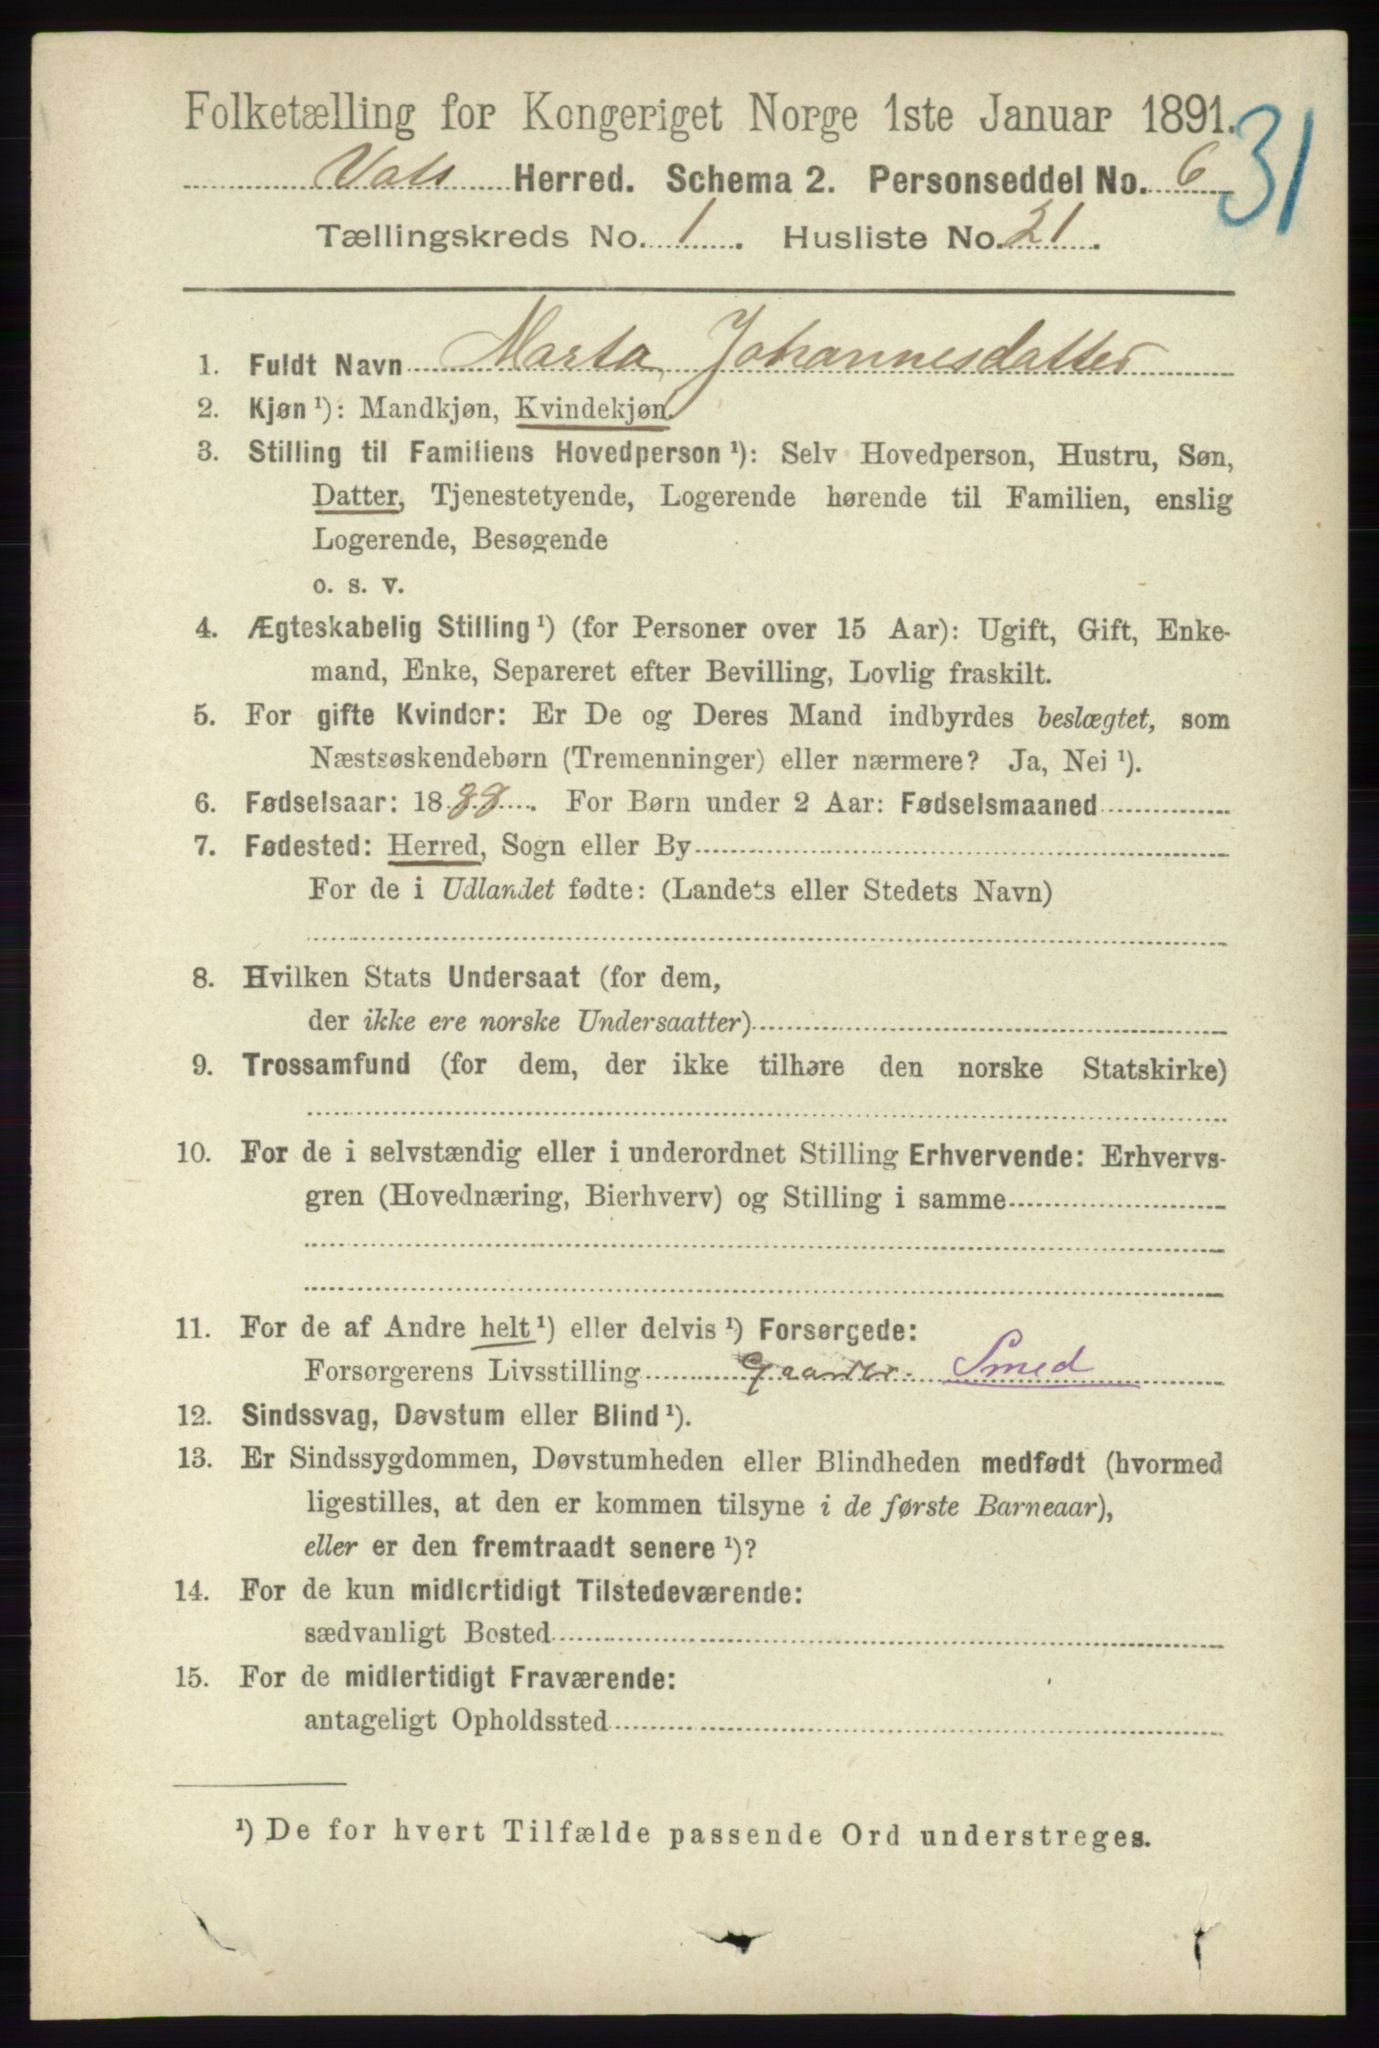 Folketælling for Kongeriget Norge 1ste Januar 1891.
31
Vats Herred. Schema 2. Personseddel No. 6
Tællingskreds No. 1. Husliste No. 21.
1. Fuldt Navn Marta Johannesdatter
2. Kjøn ¹): Mandkjøn, Kvindekjøn.
3. Stilling til Familiens Hovedperson ¹): Selv Hovedperson, Hustru, Søn,
Datter, Tjenestetyende, Logerende hørende til Familien, enslig
Logerende, Besøgende
o. s. v.
4. Ægteskabelig Stilling ¹) (for Personer over 15 Aar): Ugift, Gift, Enke-
mand, Enke, Separeret efter Bevilling, Lovlig fraskilt.
5. For gifte Kvinder: Er De og Deres Mand indbyrdes beslægtet, som
Næstsøskendebørn (Tremenninger) eller nærmere? Ja, Nei ¹).
6. Fødselsaar: 1888. For Børn under 2 Aar: Fødselsmaaned
7. Fødested: Herred, Sogn eller By
For de i Udlandet fødte: (Landets eller Stedets Navn)
8. Hvilken Stats Undersaat (for dem,
der ikke ere norske Undersaatter)
9. Trossamfund (for dem, der ikke tilhøre den norske Statskirke)
10. For de i selvstændig eller i underordnet Stilling Erhvervende: Erhvervs-
gren (Hovednæring, Bierhverv) og Stilling i samme
11. For de af Andre helt ¹) eller delvis ¹) Forsørgede:
Forsørgerens Livsstilling Smed
12. Sindssvag, Døvstum eller Blind ¹).
13. Er Sindssygdommen, Døvstumheden eller Blindheden medfødt (hvormed
ligestilles, at den er kommen tilsyne i de første Barneaar),
eller er den fremtraadt senere ¹)?
14. For de kun midlertidigt Tilstedeværende:
sædvanligt Bosted
15. For de midlertidigt Fraværende:
antageligt Opholdssted
¹) De for hvert Tilfælde passende Ord understreges.